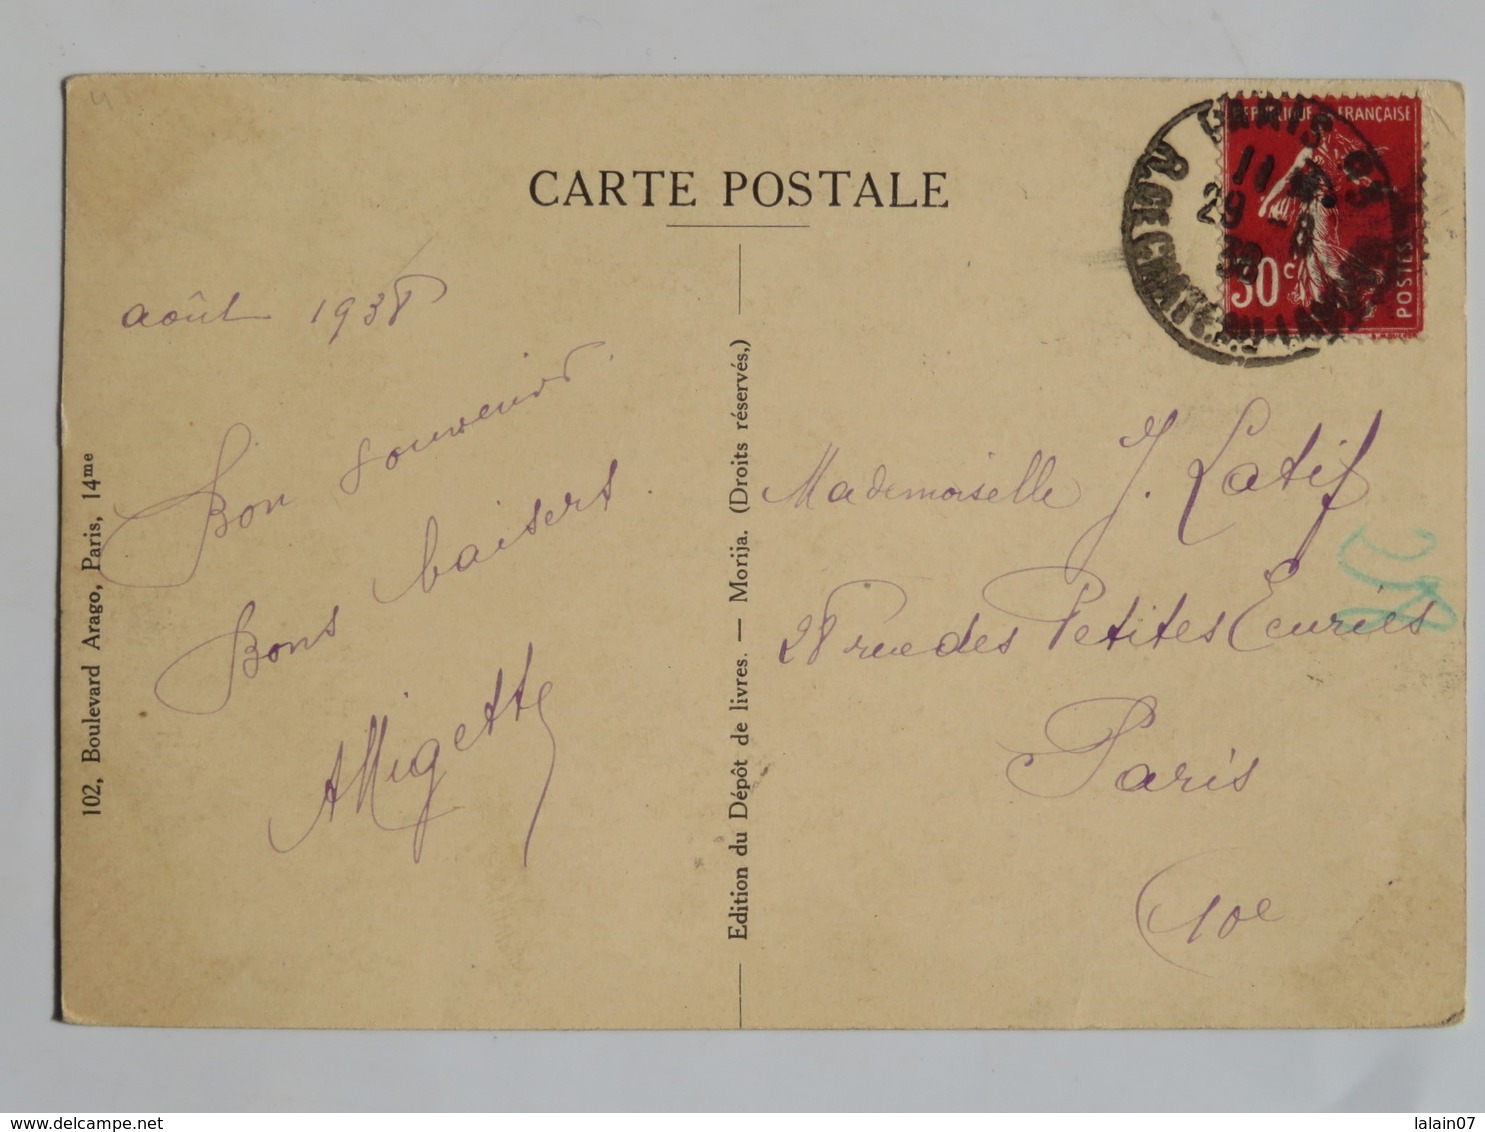 CARTE POSTALE
REPUBLIQUE FRANÇAISE
30c
POSTES
PARIS
11
29 - 8
38
août 1938
Bon souvenir.
Bons baisers.
Migette
102, Boulevard Arago, Paris, 14me
Edition du Dépôt de livres. — Morija. (Droits réservés,)
Mademoiselle J. Latif
28 rue des Petites Ecuries
Paris
10e
delcampe.net
lalain07